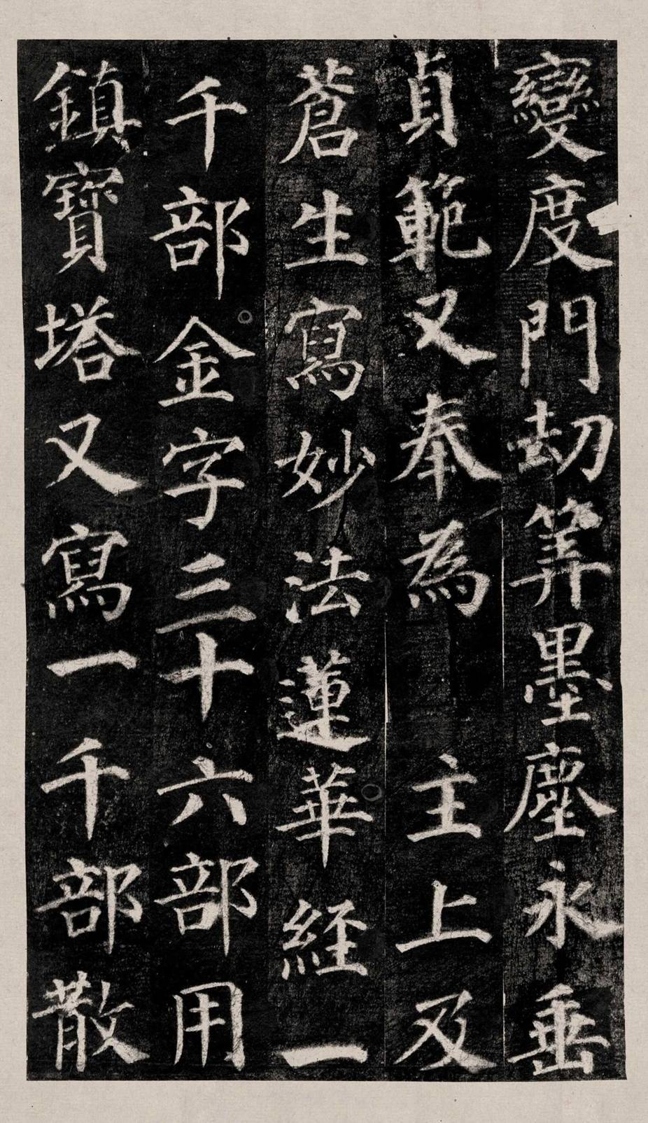 變度門劫筭墨塵永垂
貞範又奉為 主上及
蒼生寫妙法蓮華經一
千部金字三十六部用
鎮寶塔又寫一千部散